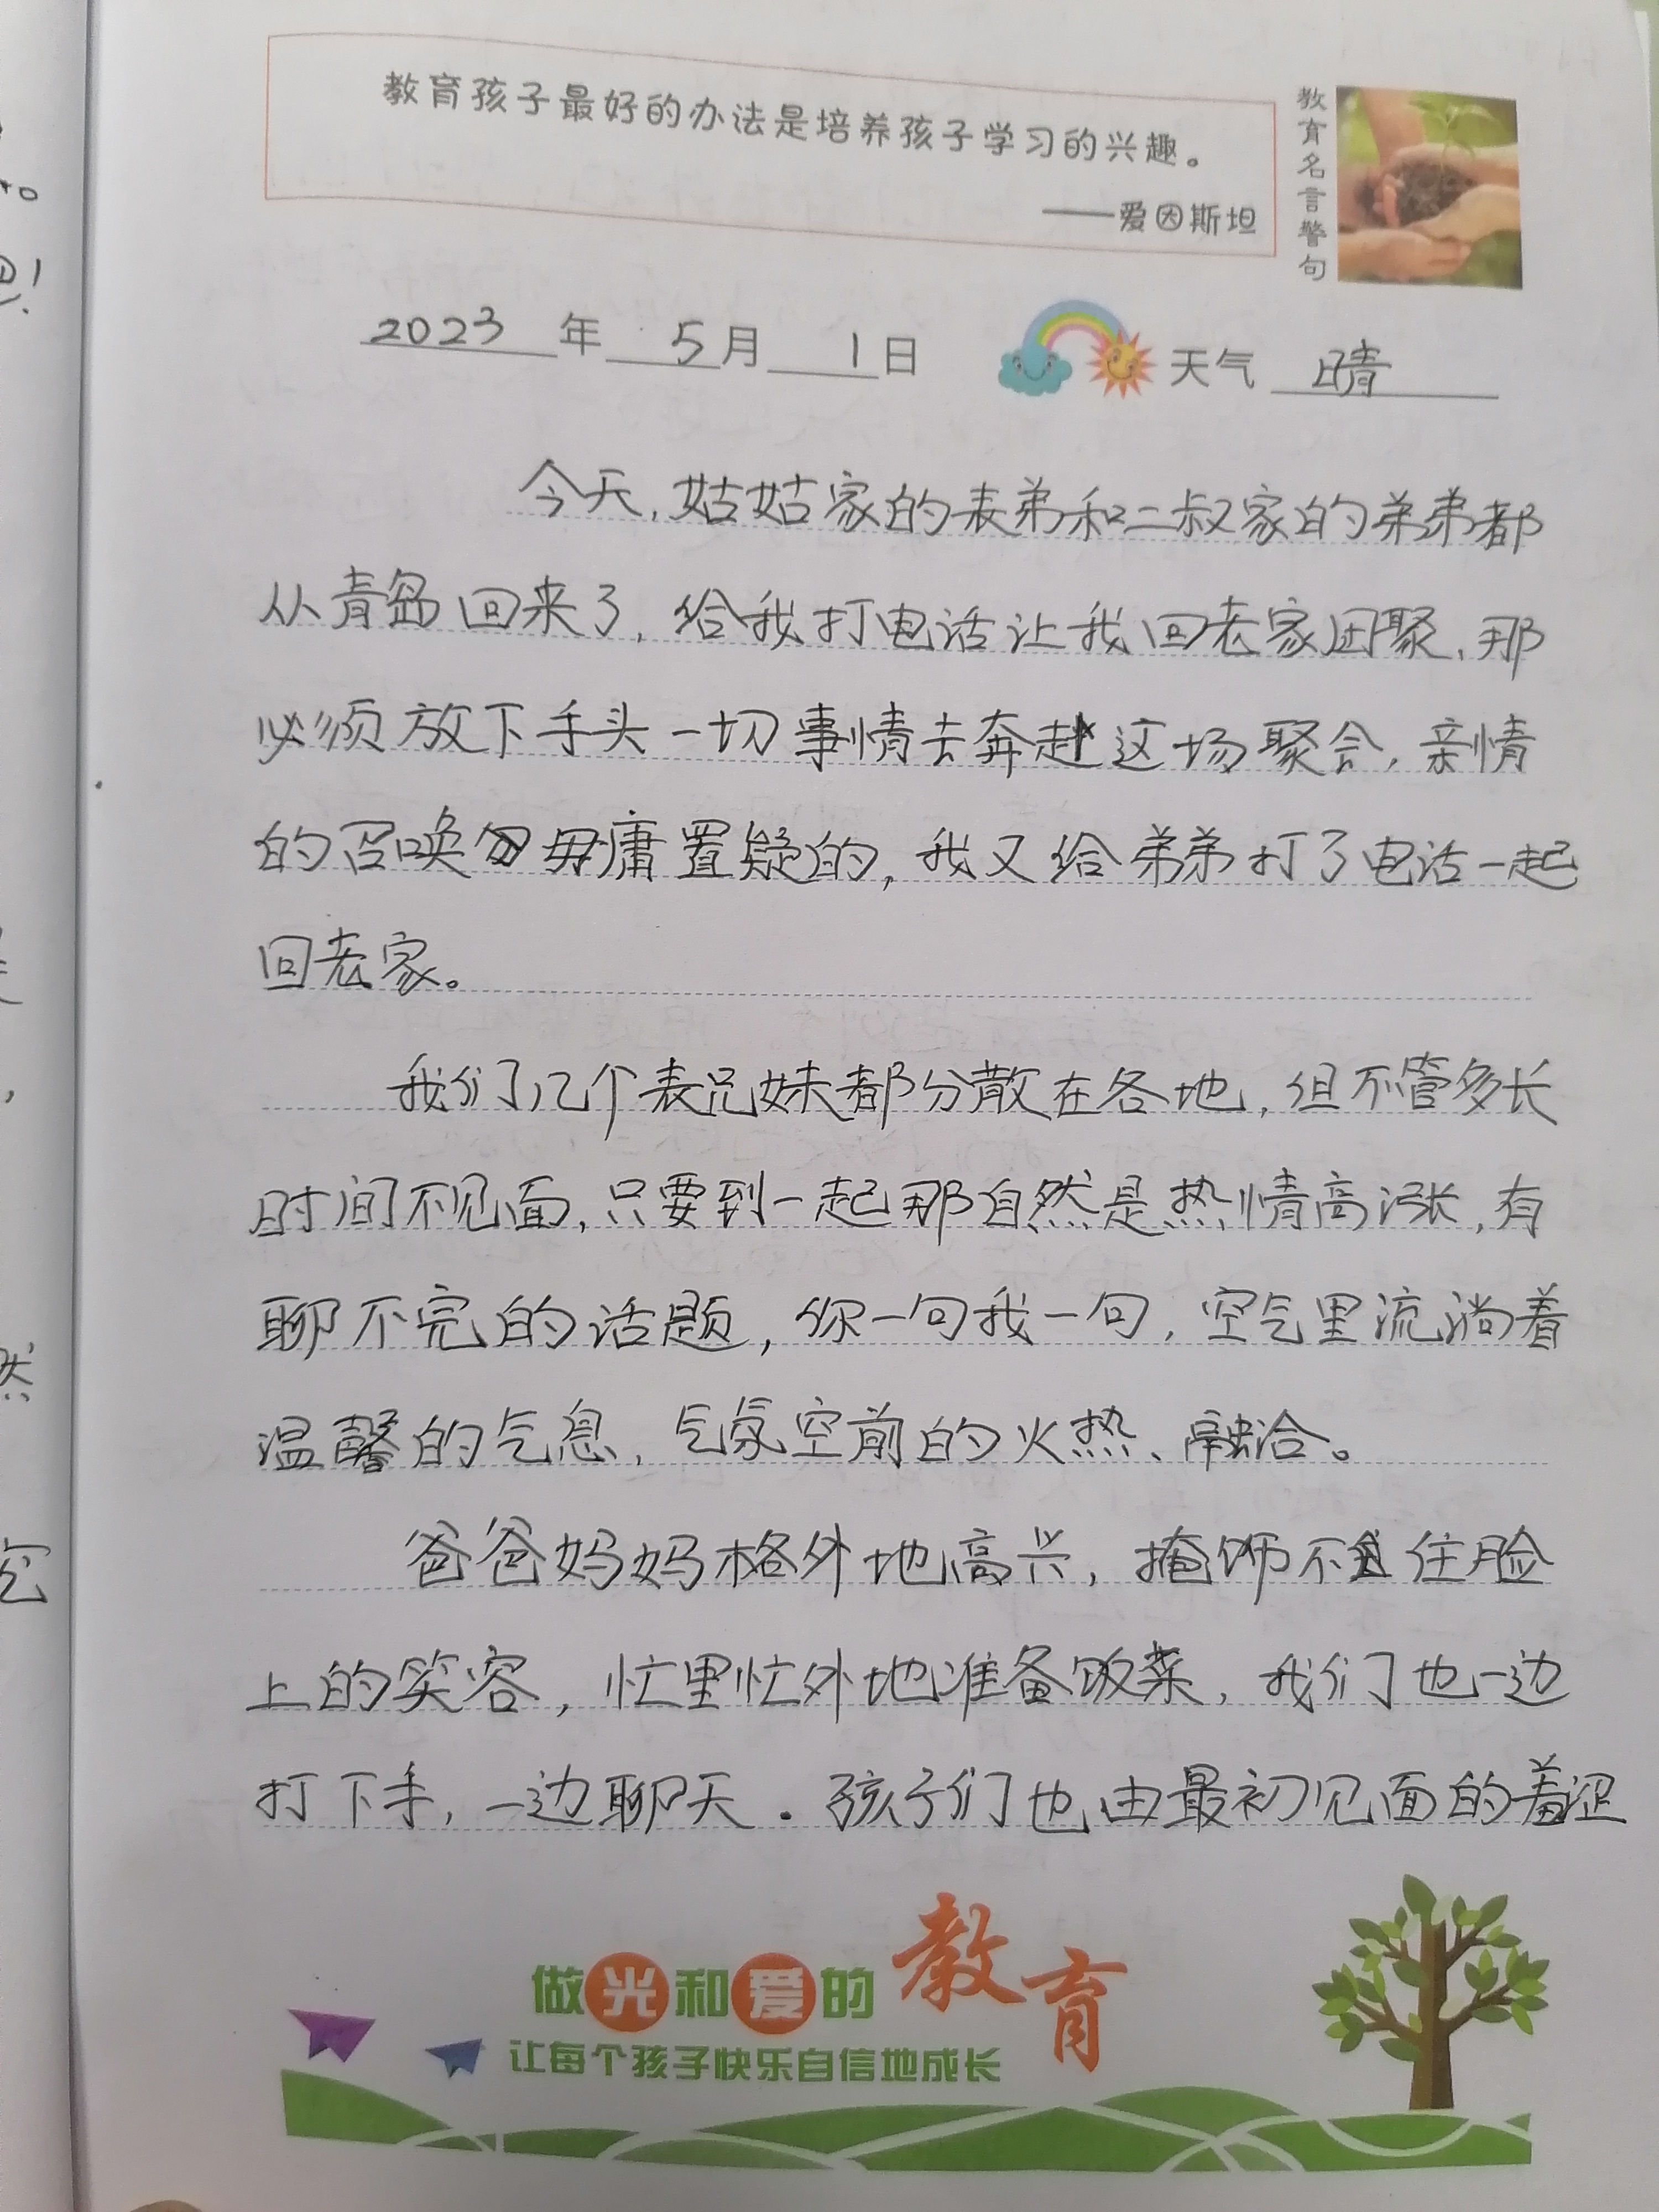 教育孩子最好的办法是培养孩子学习的兴趣。
——爱因斯坦
教育名言警句
2023 年 5 月 1 日 天气 晴
今天,姑姑家的表弟和二叔家的弟弟都
从青岛回来了,给我打电话让我回老家团聚,那
必须放下手头一切事情去奔赴这场聚会,亲情
的召唤毋庸置疑的,我又给弟弟打了电话一起
回老家。
我们几个表兄妹都分散在各地,但不管多长
时间不见面,只要到一起那自然是热情高涨,有
聊不完的话题,你一句我一句,空气里流淌着
温馨的气息,气氛空前的火热、融洽。
爸爸妈妈格外地高兴,掩饰不住脸
上的笑容,忙里忙外地准备饭菜,我们也一边
打下手,一边聊天.孩子们也由最初见面的羞涩
做光和爱的教育
让每个孩子快乐自信地成长